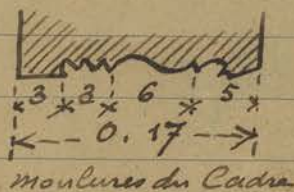 3 3 6 5
0.17
moulures du Cadre